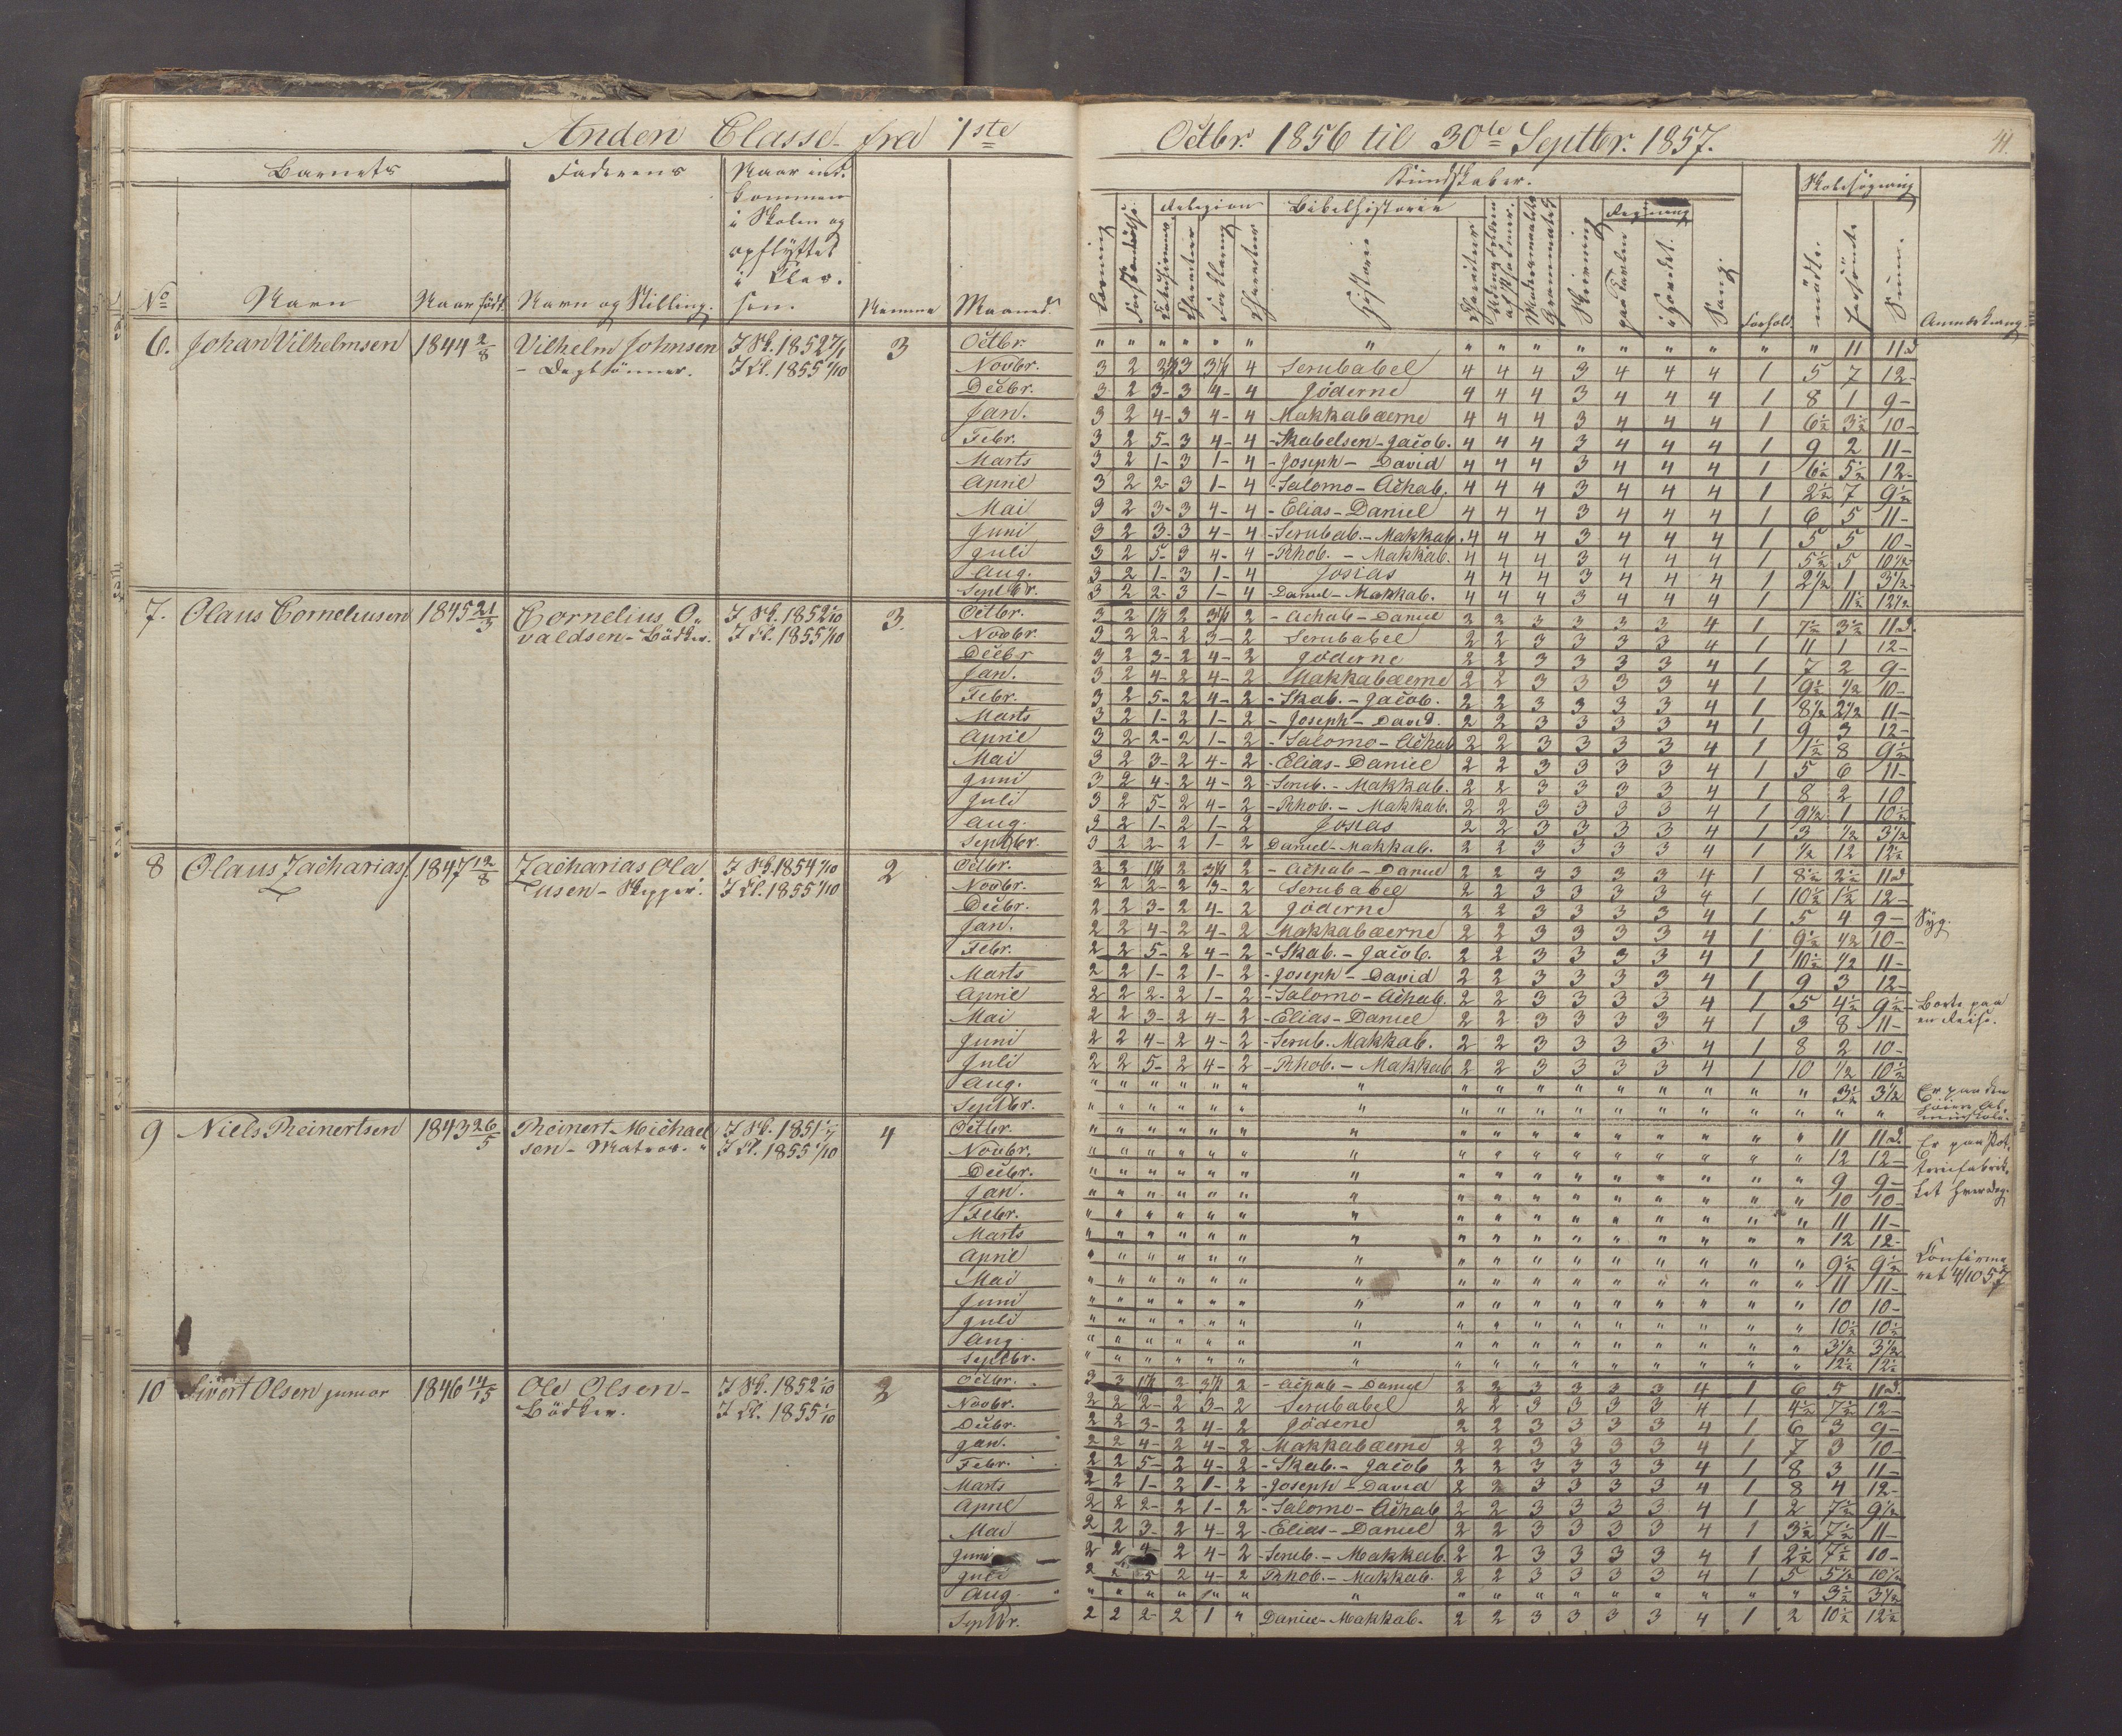 Anden Classe fra 1ste Octbr. 1856 til 30te Septbr. 1857.
41.
Barnets
Faderens
Naar ind-
kommen
i Skolen og
opflyttet
i Clas-
sen.
No
Navn
Naar født.
Navn og Stilling.
Nummer
Maaned.
Kundskaber.
Religion
Bibelhistorie
Historie
Skrivning
Regning
paa Tavlen
i Hovedet.
Sang.
Forhold.
Skolesøgning
mødte.
forsømte
Sum.
Anmærkning.
6. Johan Vilhelmsen 1844 2/8 Vilhelm Johnsen I Sk. 1852 7/1 3
- Daglønner. I Kl. 1855 1/10
Octbr. " " " " " " " " " " " " " " " " 11 11 d
Novbr. 3 2 3 4 Serubabel 4 4 4 3 4 4 4 1 5 7 12-
Decbr. 3 2 3- 3 4- 4 Jöderne 4 4 4 3 4 4 4 1 8 1 9-
Jan. 3 2 4- 3 4- 4 Makkabæerne 4 4 4 3 4 4 4 1 6½ 3½ 10-
Febr. 3 2 5- 3 4- 4 -Skabelsen-Jacob. 4 4 4 3 4 4 4 1 9 2 11-
Marts 3 2 1- 3 1- 4 -Joseph- David 4 4 4 3 4 4 4 1 6½ 5½ 12-
April 3 2 2- 3 1- 4 -Salomo-Achab. 4 4 4 3 4 4 4 1 2½ 7 9½
Mai 3 2 3- 3 4- 4 -Elias-Daniel 4 4 4 3 4 4 4 1 6 5 11-
Juni 3 2 3- 3 4- 4 -Serubab.-Makkab. 4 4 4 3 4 4 4 1 5 5 10-
Juli 3 2 5- 3 4- 4 -Rhob.- Makkab. 4 4 4 3 4 4 4 1 5½ 5 10½
Aug. 3 2 1- 3 1- 4 Josias 4 4 4 3 4 4 4 1 2½ 1 3½
Septbr. 3 2 2- 3 1- 4 -Daniel-Makkab. 4 4 4 3 4 4 4 1 1 11½ 12½
7. Olaus Corneliusen 1845 21/3 Cornelius O- I Sk. 1852 1/10 3.
valdsen-Bödker. I Kl. 1855 1/10
Octbr. 3 2 2 2 -Achab-Daniel 2 2 3 3 3 3 4 1 7½ 3½ 11 d.
Novbr. 3 2 2- 2 3- 2 Serubabel 2 2 3 3 3 3 4 1 11 1 12-
Decbr 3 2 3- 2 4- 2 Jöderne 2 2 3 3 3 3 4 1 7 2 9-
Jan. 3 2 4- 2 4- 2 Makkabæerne 2 2 3 3 3 3 4 1 9½ ½ 10-
Febr. 3 2 5- 2 4- 2 -Skab.-Jacob. 2 2 3 3 3 3 4 1 8½ 2½ 11-
Marts 3 2 1- 2 1- 2 -Joseph-David. 2 2 3 3 3 3 4 1 9 3 12-
April 3 2 2- 2 1- 2 -Salomo-Achab 2 2 3 3 3 3 4 1 1½ 8 9½
Mai 3 2 3- 2 4- 2 -Elias-Daniel 2 2 3 3 3 3 4 1 5 6 11-
Juni 3 2 4- 2 4- 2 -Serub.-Makkab. 2 2 3 3 3 3 4 1 8 2 10
Juli 3 2 5- 2 4- 2 -Rhob.- Makkab. 2 2 3 3 3 3 4 1 9½ 1 10½
Aug. 3 2 1- 2 1- 2 Josias 2 2 3 3 3 3 4 1 3 ½ 3½
Septbr. 3 2 2- 2 1- 2 Daniel-Makkab. 2 2 3 3 3 3 4 1 ½ 12 12½
8 Olaus Zacharias. 1847 12/8 Zacharias Ola- I Sk. 1854 1/10 2
usen-Skipper. I Kl. 1855 1/10
Octbr. 2 2 2 2 -Achab-Daniel 2 2 3 3 3 3 4 1 8½ 2½ 11 d
Novbr. 2 2 2- 2 3- 2 Serubabel 2 2 3 3 3 3 4 1 10½ 1½ 12-
Decbr. 2 2 3- 2 4- 2 Jöderne 2 2 3 3 3 3 4 1 5 4 9- Syg.
Jan. 2 2 4- 2 4- 2 Makkabæerne 2 2 3 3 3 3 4 1 9½ ½ 10-
Febr. 2 2 5- 2 4- 2 -Skab.-Jacob. 2 2 3 3 3 3 4 1 10½ ½ 11-
Marts 2 2 1- 2 1- 2 -Joseph-David 2 2 3 3 3 3 4 1 9 3 12-
April 2 2 2- 2 1- 2 -Salomo-Achab. 2 2 3 3 3 3 4 1 5 4½ 9½- Borte paa
Mai 2 2 3- 2 4- 2 -Elias-Daniel 2 2 3 3 3 3 4 1 3 8 11- en Reise.
Juni 2 2 4- 2 4- 2 -Serub. Makkab. 2 2 3 3 3 3 4 1 8 2 10-
Juli 2 2 5- 2 4- 2 -Rhob.- Makkab 2 2 3 3 3 3 4 1 10 ½ 10½
Aug. " " " " " " " " " " " " " " " " 3½ 3½ Er paa den
Septbr. " " " " " " " " " " " " " " " " " " høiere Al-
mueskole.
9 Niels Reinertsen 1843 26/5 Reinert Michael- I Sk. 1851 4
sen-Matros. I Kl. 1855 1/10
Octbr. " " " " " " " " " " " " " " " " 11 11 d. Er paa Pot-
Novbr. " " " " " " " " " " " " " " " " 12 12- teriefabrik-
Decbr. " " " " " " " " " " " " " " " " 9 9- ket hverdag.
Jan. " " " " " " " " " " " " " " " " 10 10-
Febr. " " " " " " " " " " " " " " " " 11 11-
Marts " " " " " " " " " " " " " " " " 12 12-
April " " " " " " " " " " " " " " " " 9½ 9½ Confirme-
Mai " " " " " " " " " " " " " " " " 11 11- ret 4/10 57
Juni " " " " " " " " " " " " " " " " 10 10-
Juli " " " " " " " " " " " " " " " " 10½ 10½
Aug. " " " " " " " " " " " " " " " " 3½ 3½
Septbr. " " " " " " " " " " " " " " " " 12½ 12½
10 Sivert Olsen junior 1846 14/15 Ole Olsen- I Sk. 1852 1/10 2
Bödker. I Kl. 1855 1/10
Octbr. 2 2 -Achab-Daniel 2 2 3 3 3 3 4 1 6 5 11 d.
Novbr. 2 2 2- 2 3- 2 Serubabel 2 2 3 3 3 3 4 1 4½ 7½ 12-
Decbr. 2 2 3- 2 4- 2 Jöderne 2 2 3 3 3 3 4 1 6 3 9-
Jan. 2 2 4- 2 4- 2 Makkabæerne 2 2 3 3 3 3 4 1 7 3 10-
Febr. 2 2 5- 2 4- 2 -Skab.-Jacob 2 2 3 3 3 3 4 1 8 3 11-
Marts 2 2 1- 2 1- 2 -Joseph-David 2 2 3 3 3 3 4 1 8 4 12-
April 2 2 2- 2 1- 2 -Salomo-Achab 2 2 3 3 3 3 4 1 2 7½ 9½
Mai 2 2 3- 2 4- 2 -Elias-Daniel 2 2 3 3 3 3 4 1 3½ 7½ 11-
Juni 2 2 4- 2 4- 2 -Serub.-Makkab. 2 2 3 3 3 3 4 1 2½ 7½ 10-
Juli 2 2 5 2 4- 2 Rhob.-Makkab. 2 2 3 3 3 3 4 1 5 5½ 10½
Aug. " " " " " " " " " " " " " " " " 3½ 3½
Septbr. 2 2 2- 2 1 " Daniel-Makkab. 2 2 3 3 3 3 4 1 2 10½ 12½